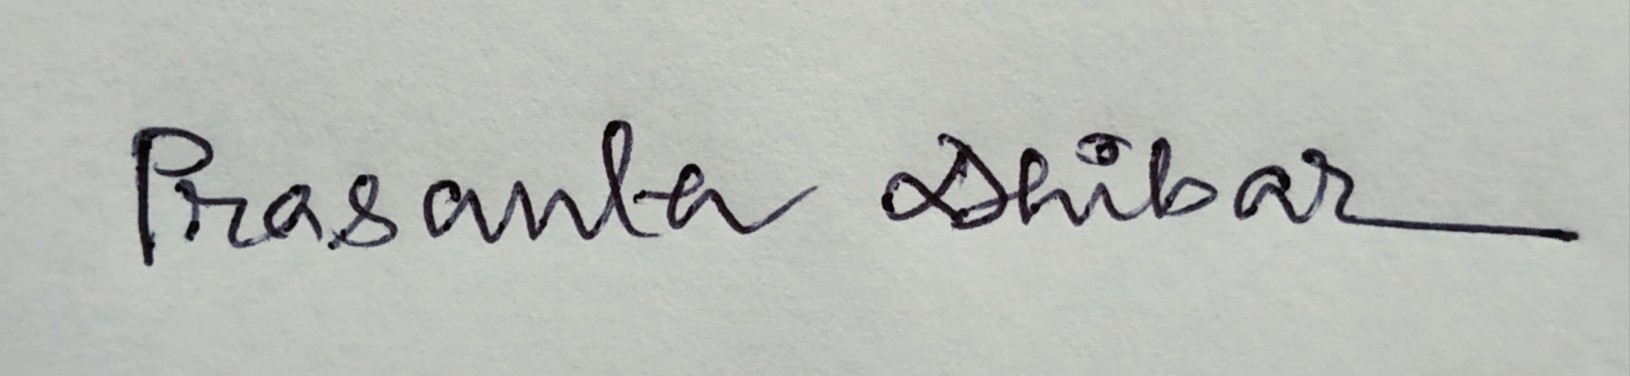 Prasanta Dhibar